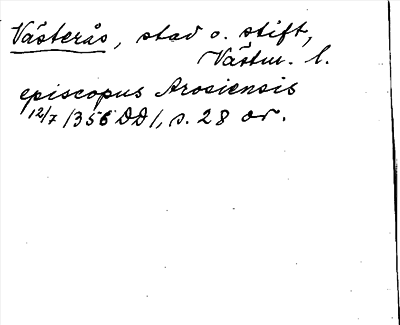 Västerås, stad o. stift,
Västm. l.
episcopus Arosiensis
12/7 1356 DD 1, s. 28 or.